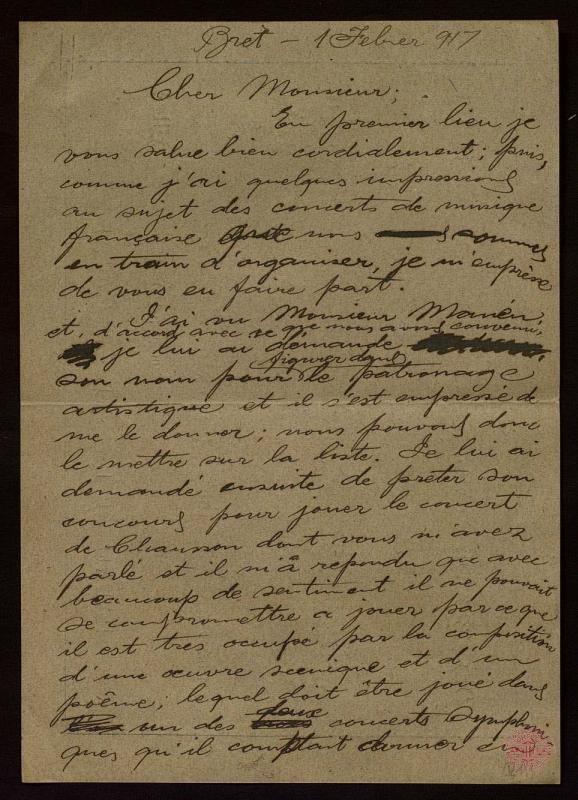 Bret – 1 Febrer 917
Cher Monsieur;
En premier lieu je
vous salue bien cordialement; puis,
comme j'ai quelques impressions
au sujet des concerts de musique
française que nous sommes
en train d'organiser, je m'emprèsse
de vous en faire part.
J'ai vu Monsieur Manén,
et, d'accord avec ce que nous avons convenu,
je lui ai demandé
figurer dans
son nom pour le patronage
artistique et il s'est empressé de
me le donner; nous pouvons donc
le mettre sur la liste. Je lui ai
demandé ensuite de prêter son
concours pour jouer le concert
de Chausson dont vous m'avez
parlé et il m'â repondu que avec
beaucoup de sentiment il ne pouvait
se compromettre a jouer parce que
il est tres occupé par la composition
d'une œuvre scenique et d'un
poême, lequel doit être joué dans
un des deux concerts symphoni-
ques qu'il comptait donner en